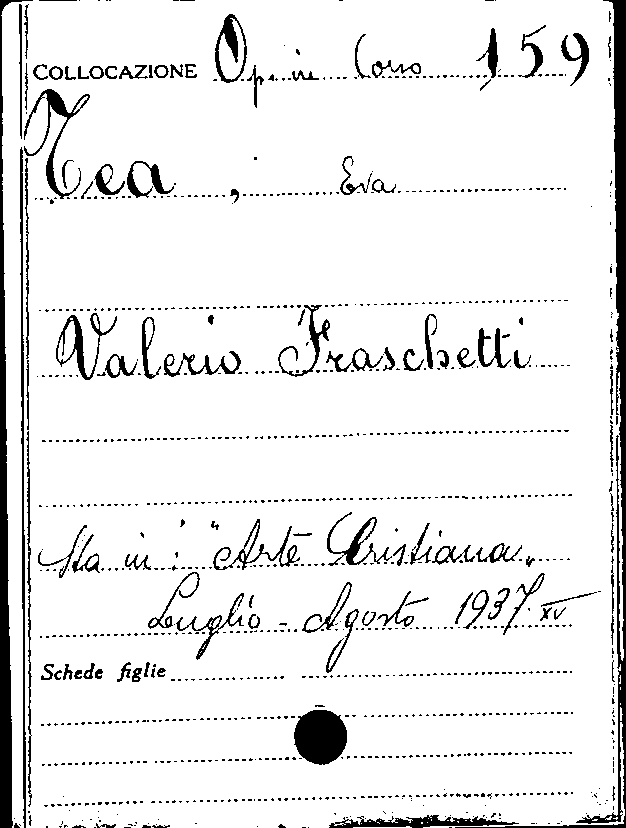 COLLOCAZIONE Op. in Corso 159
Tea, Eva
Valerio Fraschetti
Sta in: "Arte Cristiana"
Luglio - Agosto 1937. XV
Schede figlie